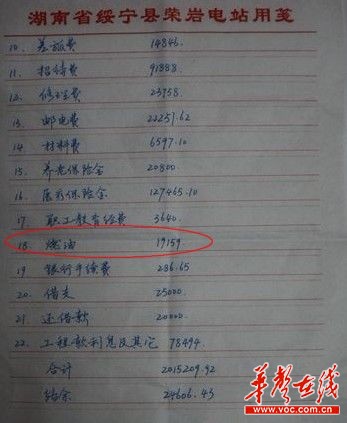 湖南省绥宁县荣岩电站用笺
10. 差旅费 14846.
11. 招待费 91888
12. 修理费 23758
13. 邮电费 22257.62
14 材料费 6597.10
15. 养老保险金 20800
16. 医疗保险金 127465.10
17 职工教育经费 3640.
18. 燃油 19159.
19 银行手续费 286.65
20. 借支 25000
21. 还借款 20000
22. 工程款利息及其它 78494.
合计 2015209.92
结余 24606.43
华声在线
www.voc.com.cn